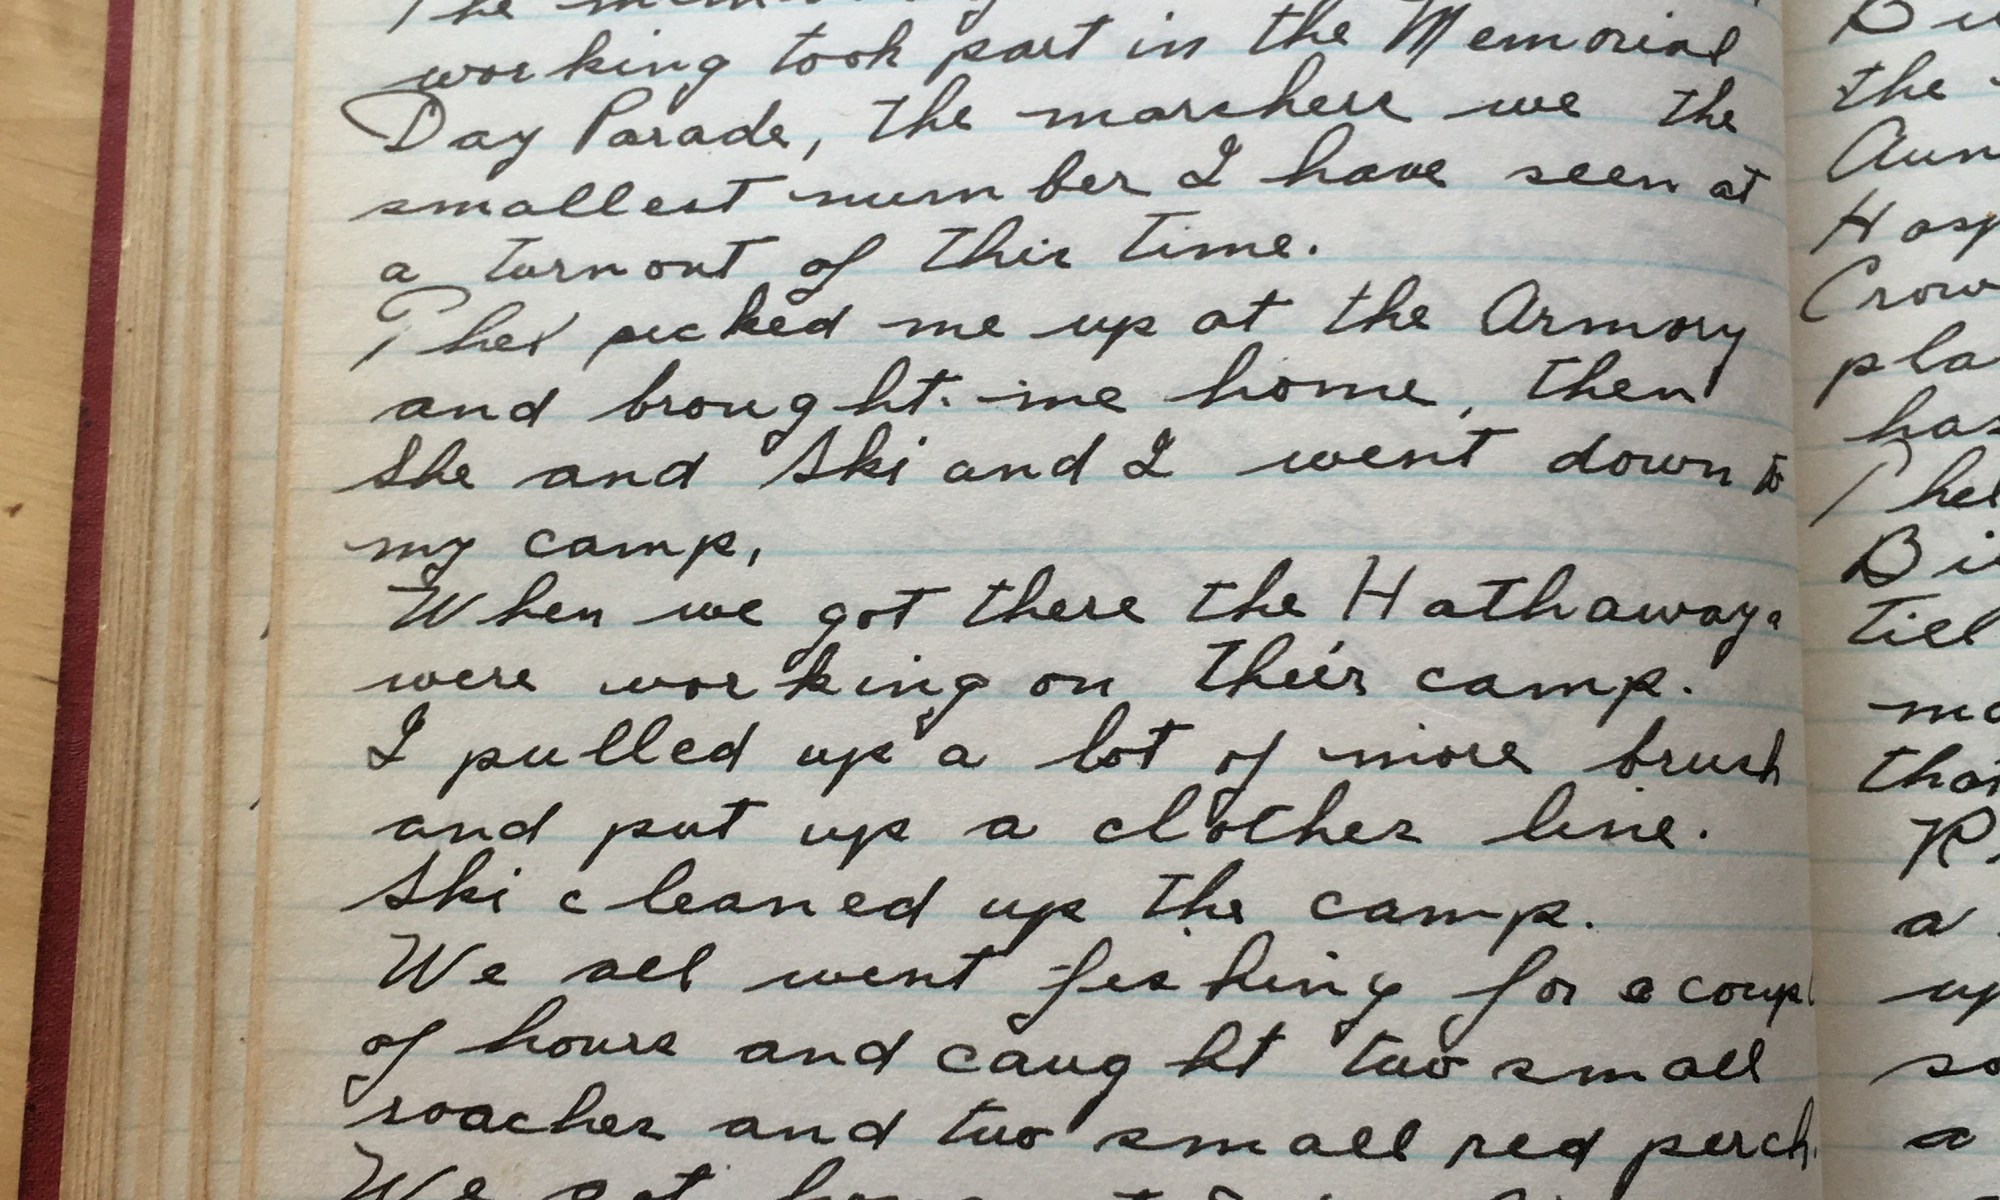 The
working took part in the Memorial
Day Parade, the marchers we the
smallest number I have seen at
a turnout of this time.
Phel picked me up at the Armory
and brought me home, then
she and Ski and I went down to
my camp,
When we got there the Hathaways
were working on their camp.
I pulled up a lot of more brush
and put up a clothes line.
Ski cleaned up the camp.
We all went fishing for a coupl
of hours and caught two small
roaches and two small red perch.
We got
the
Aun
Hosp
Crow
pla
has
Phel
Bi
till
mo
that
R
a
up
so
a